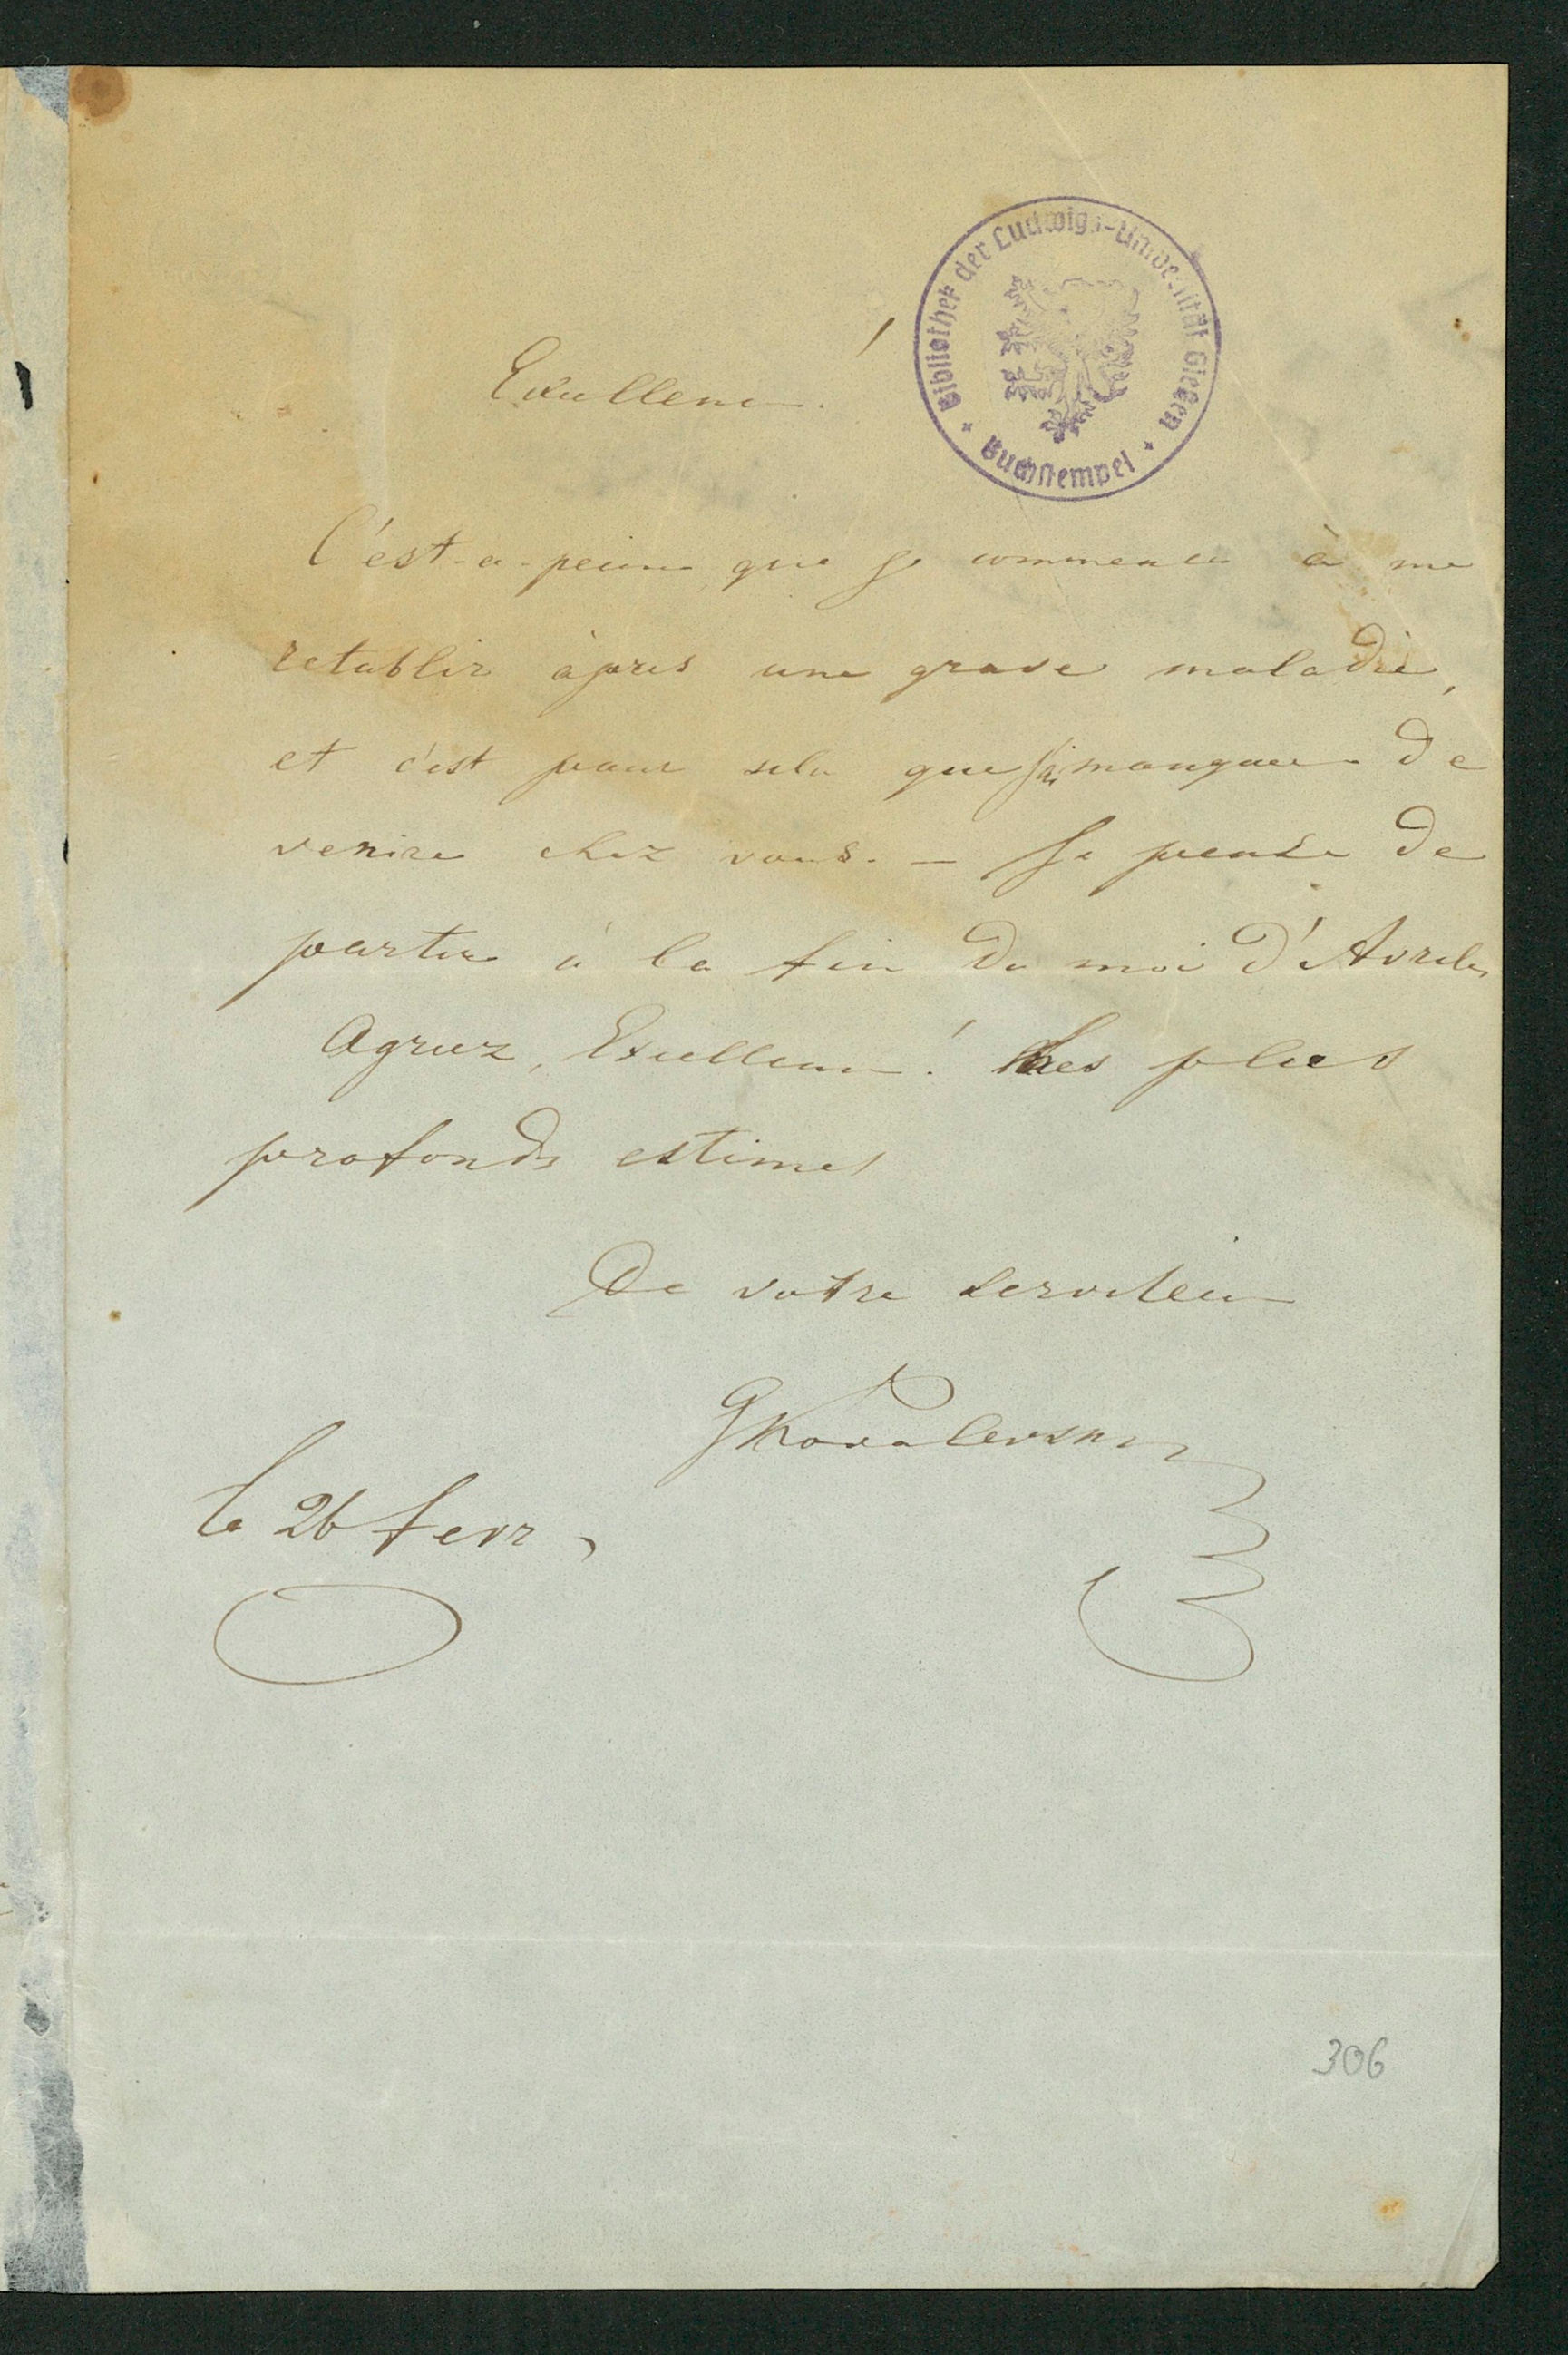 Excellence!
Bibliothek der Ludwigs-Universität Gießen
Buchstempel
C'est-a-peine que je commence à me
retablir àpres une grave maladie,
et c'est pour sela que j'ai manquee de
venire chez vous. — Je pense de
partire à la fin du moi d'Avrile,
Agreez, Excellence! les plus
profonds estimes
De votre serviteur
GKovalevsky
le 26 fevr.
306